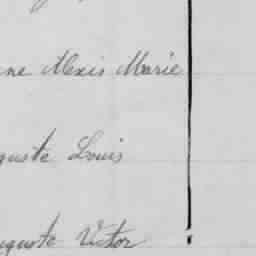 ne Alexis Marie
guste Louis
uguste Victor